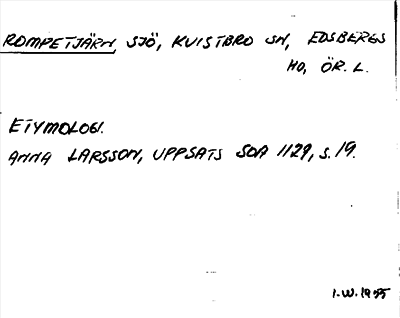 ROMPETJÄRN SJÖ, KVISTBRO SN, EDSBERGS
HD, ÖR. L.
ETYMOLOGI.
ANNA LARSSON, UPPSATS SOA 1129, S. 19.
I.W. 1955